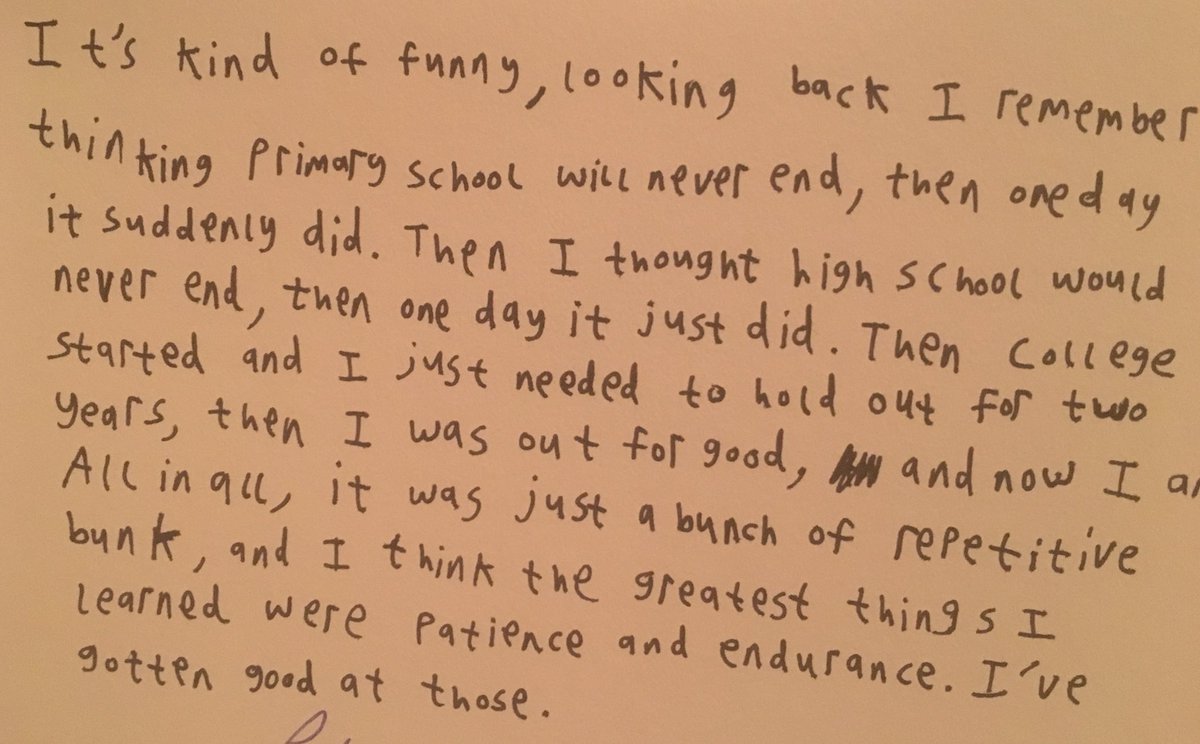 It's kind of funny, looking back I remember
thinking primary school will never end, then one day
it suddenly did. Then I thought high school would
never end, then one day it just did. Then College
started and I just needed to hold out for two
years, then I was out for good, and now I
All in all, it was just a bunch of repetitive
bunk, and I think the greatest things I
learned were patience and endurance. I've
gotten good at those.